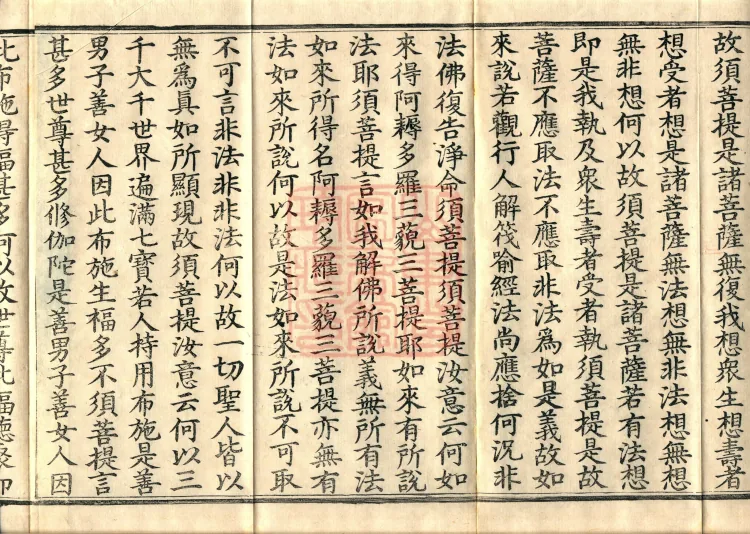 故須菩提是諸菩薩無復我想衆生想壽者
想受者想是諸菩薩無法想無非法想無想
無非想何以故須菩提是諸菩薩若有法想
即是我執及衆生壽者受者執須菩提是故
菩薩不應取法不應取非法爲如是義故如
來說若觀行人解筏喻經法尚應捨何況非
法佛復告淨命須菩提須菩提汝意云何如
來得阿耨多羅三藐三菩提耶如來有所說
法耶須菩提言如我解佛所說義無所有法
如來所得名阿耨多羅三藐三菩提亦無有
法如來所說何以故是法如來所說不可取
不可言非法非非法何以故一切聖人皆以
無爲真如所顯現故須菩提汝意云何以三
千大千世界遍滿七寶若人持用布施是善
男子善女人因此布施生福多不須菩提言
甚多世尊甚多修伽陀是善男子善女人因
此布施得福甚多何以故世尊此福德聚即